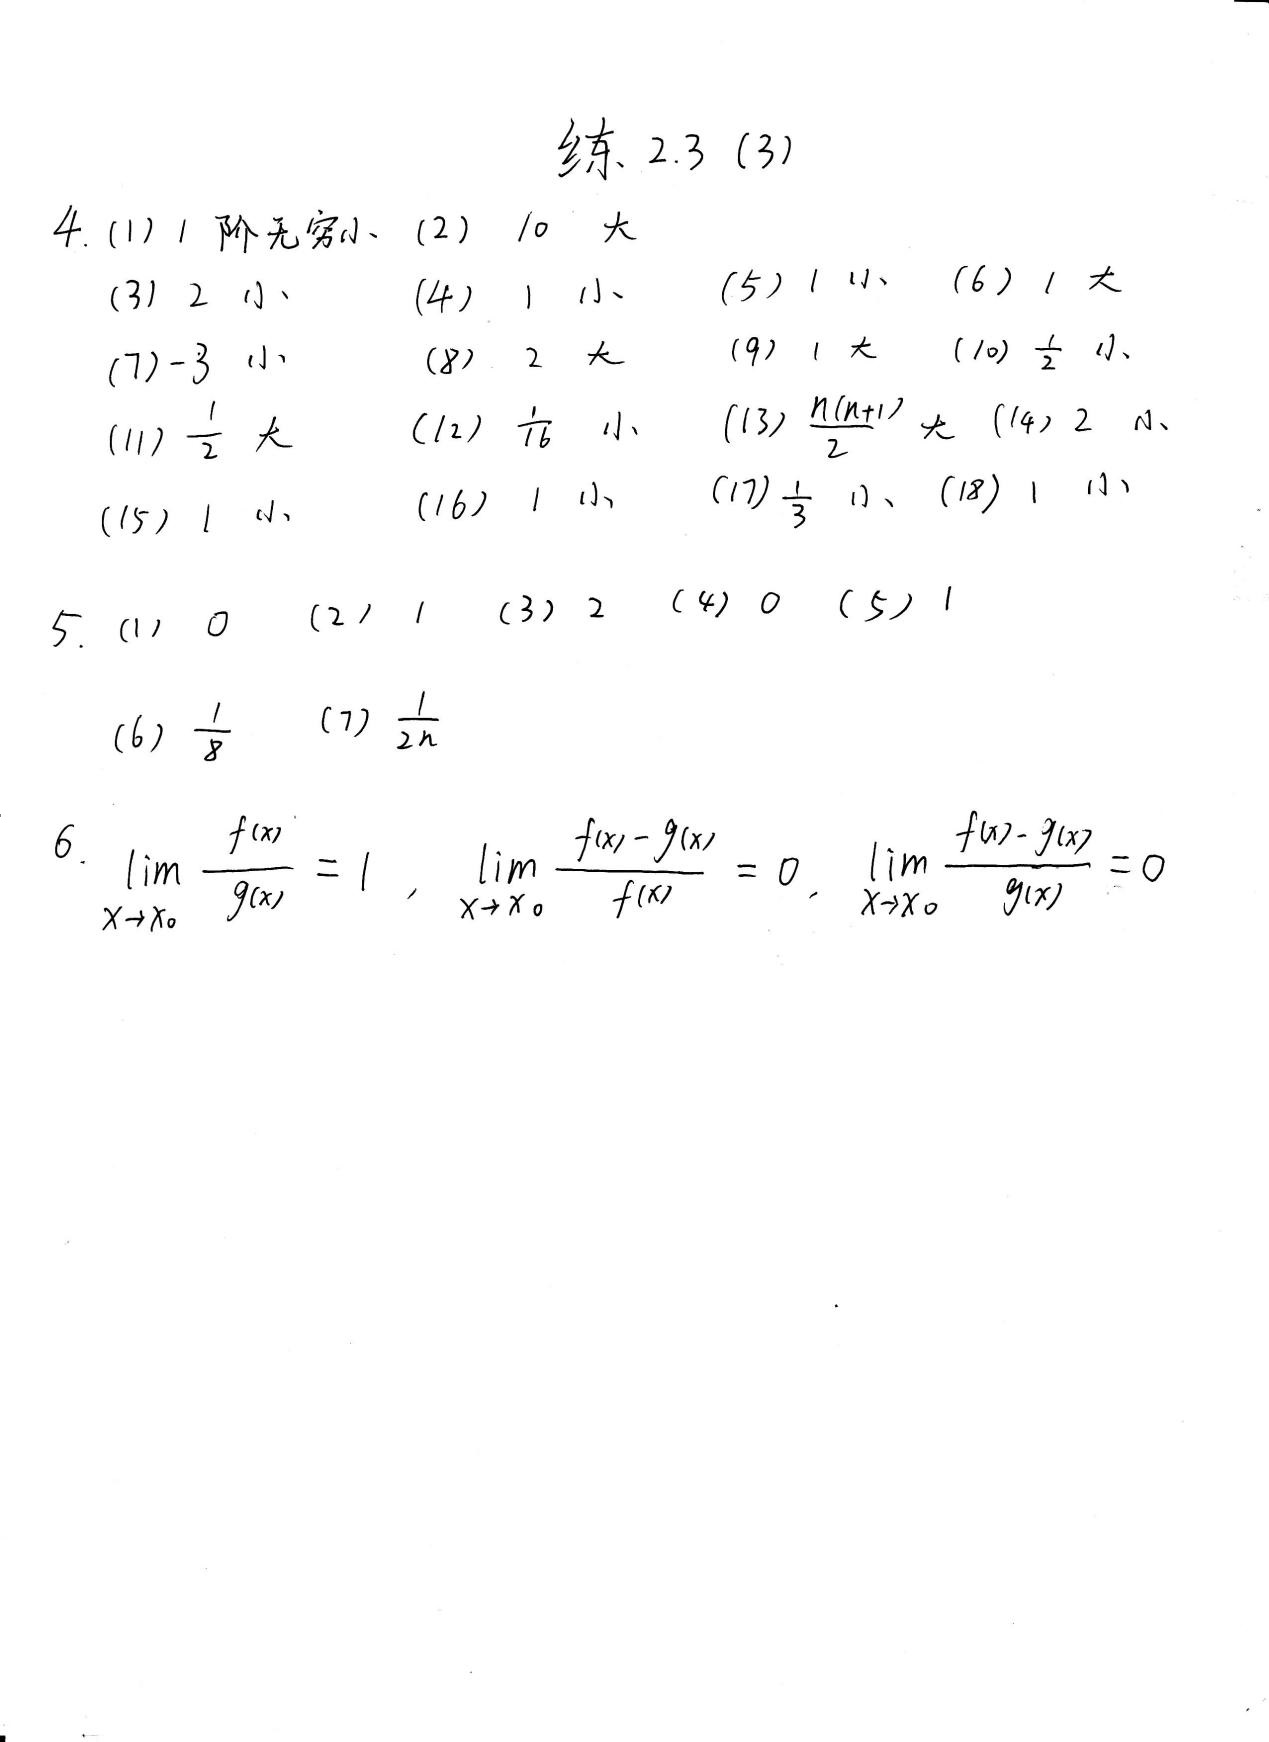 练 2.3 (3)
4. (1) 1 阶无穷小 (2) 10 大
(3) 2 小 (4) 1 小 (5) 1 小 (6) 1 大
(7) -3 小 (8) 2 大 (9) 1 大 (10) 1/2 小
(11) 1/2 大 (12) 1/16 小 (13) n(n+1)/2 大 (14) 2 小
(15) 1 小 (16) 1 小 (17) 1/3 小 (18) 1 小
5. (1) 0 (2) 1 (3) 2 (4) 0 (5) 1
(6) 1/8 (7) 1/2n
6. lim x→x₀ f(x)/g(x) = 1, lim x→x₀ (f(x)-g(x))/f(x) = 0, lim x→x₀ (f(x)-g(x))/g(x) = 0